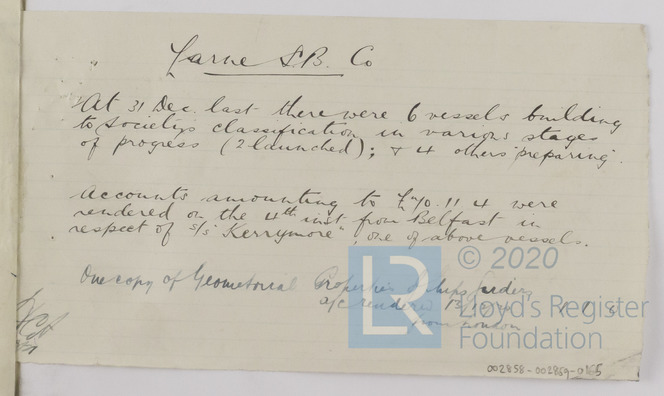 Larne S.B. Co
At 31 Dec. last there were 6 vessels building
to Society's classification in various stages
of progress (2 launched); & 4 others "preparing".
Accounts amounting to £70. 11. 4 were
rendered on the 4th inst from Belfast in
respect of s/s "Kerrymore", one of above vessels.
One copy of Geometorial Properties of Ships
a/c rendered
from London
© 2020
LR
Lloyd's Register
Foundation
002858-002869-0165